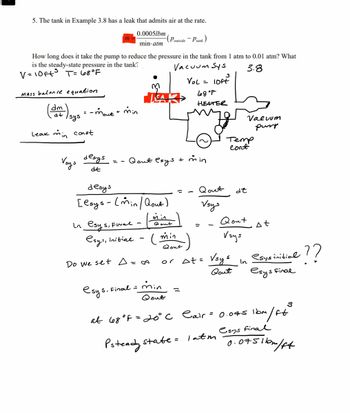 5. The tank in Example 3.8 has a leak that admits air at the rate.
ṁ = 0.0005lbm / min·atm (P_outside − P_tank)
How long does it take the pump to reduce the pressure in the tank from 1 atm to 0.01 atm? What
is the steady-state pressure in the tank?
V = 10ft³ T = 68°F
Vacuum Sys 3.8
Vol = 10ft³
68°F
HEATER
ṁ
LEAK
Vacuum pump
Temp cont
Mass balance equation
(dm/dt)sys = -ṁout + ṁin
Leak ṁin const
Vsys dρsys/dt = -Qout ρsys + ṁin
dρsys / [ρsys - (ṁin/Qout)] = - Qout/Vsys dt
ln ρsys, final - (ṁin/Qout) / ρsys, initial - (ṁin/Qout) = - Qout/Vsys Δt
Do we set Δ = ∞ or Δt = Vsys/Qout ln ρsys initial/ρsys final ??
ρsys, final = ṁin/Qout =
at 68°F = 20°C ρair = 0.045 lbm/ft³
Psteady state = 1 atm ρsys final / 0.0451bm/ft